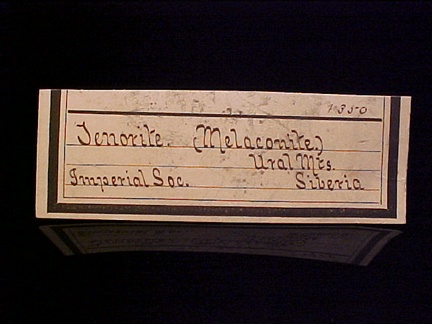 1350
Tenorite. (Melaconite.)
Ural Mts.
Imperial Soc. Siberia